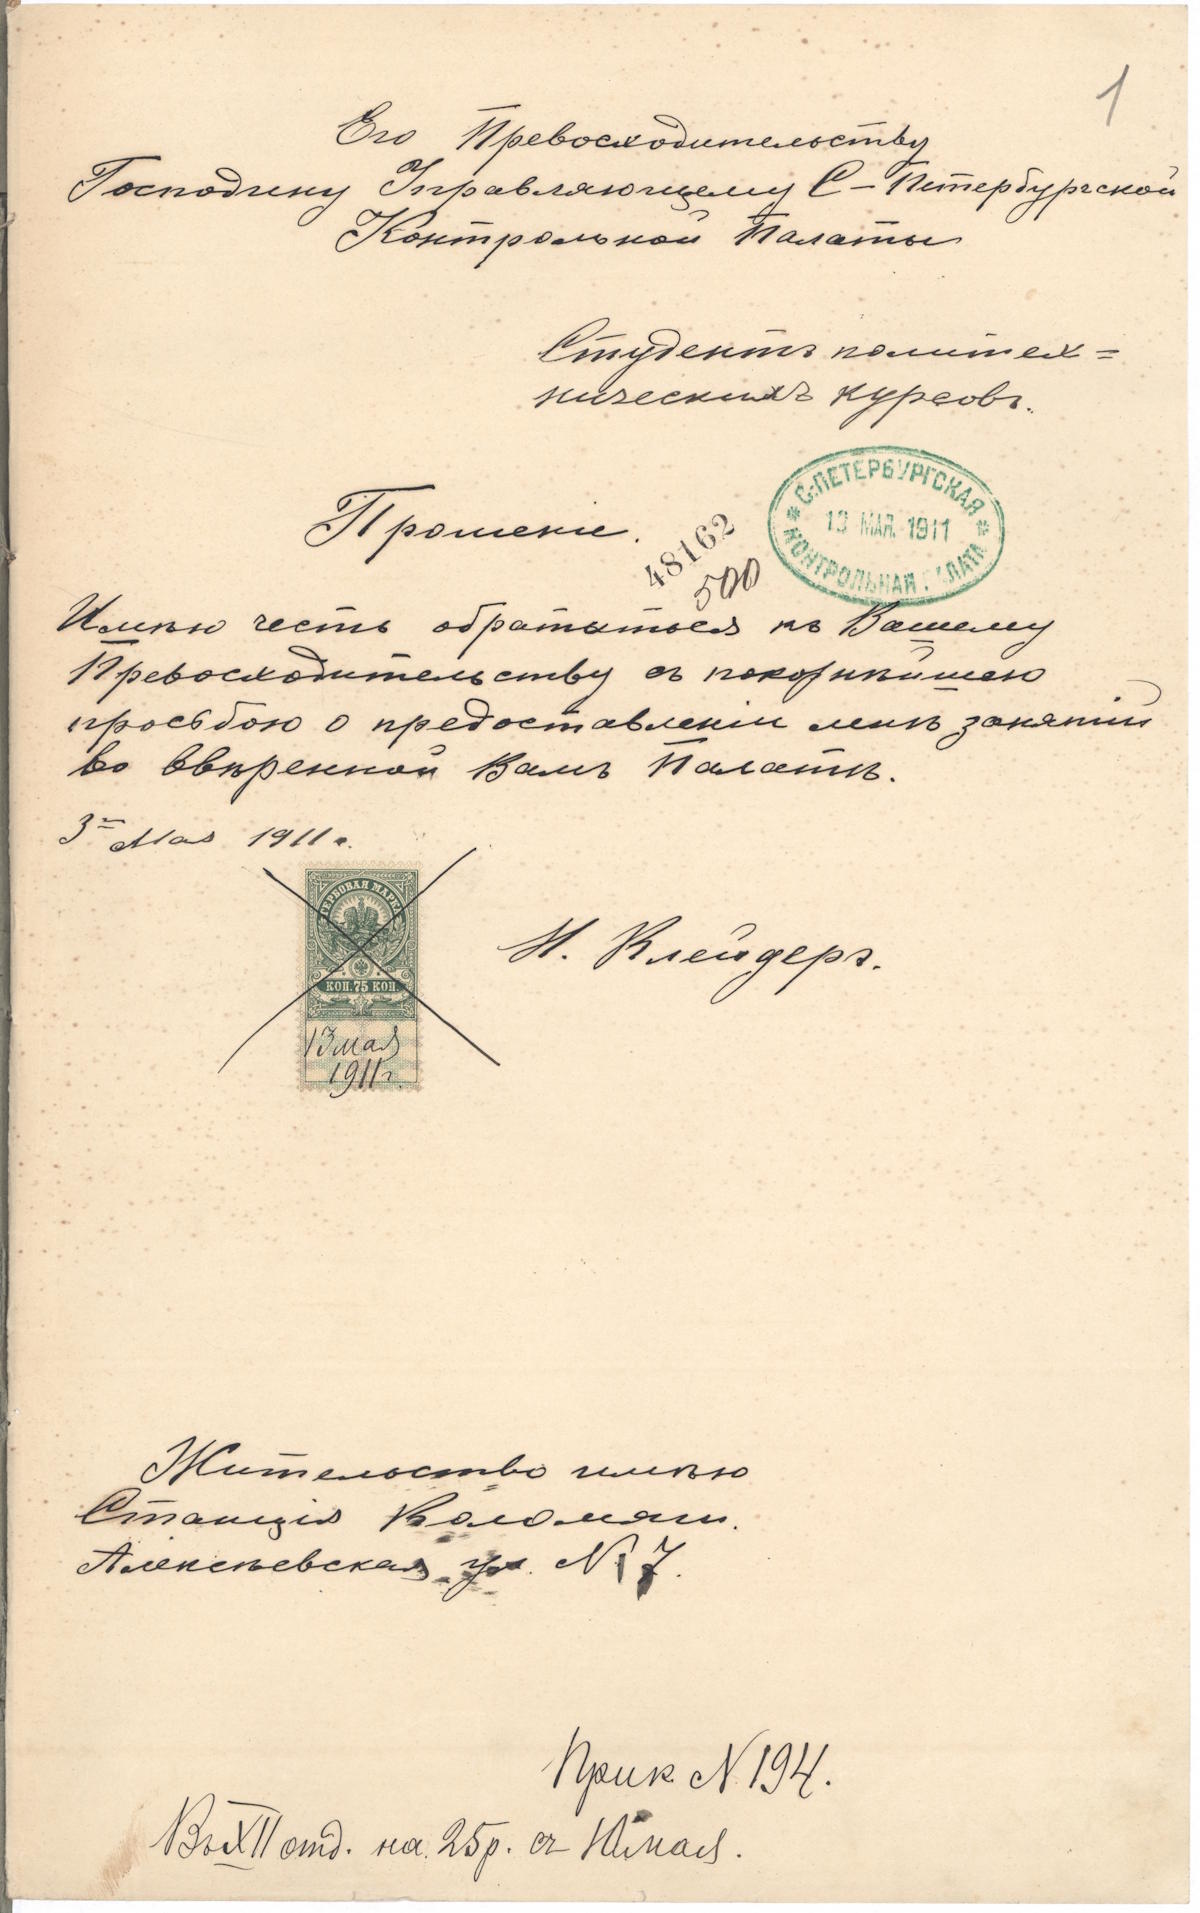 1
Его Превосходительству
Господину Управляющему С-Петербургской
Контрольной Палаты
Студентъ политех=
ническихъ курсовъ.
Прошеніе.
48162
500
С.-ПЕТЕРБУРГСКАЯ
13 МАЯ. 1911
КОНТРОЛЬНАЯ ПАЛАТА
Имѣю честь обратиться къ Вашему
Превосходительству съ покорнѣйшею
просьбою о предоставленіи мнѣ занятій
во ввѣренной Вамъ Палатѣ.
3го Мая 1911 г.
ГЕРБОВАЯ МАРКА
КОП. 75 КОП.
13 мая
1911 г.
Н. Клейдеръ.
Жительство имѣю
Станція Коломяги.
Алексѣевская ул. № 7.
Прик № 194.
Въ XII отд. на 25 р. съ мая.